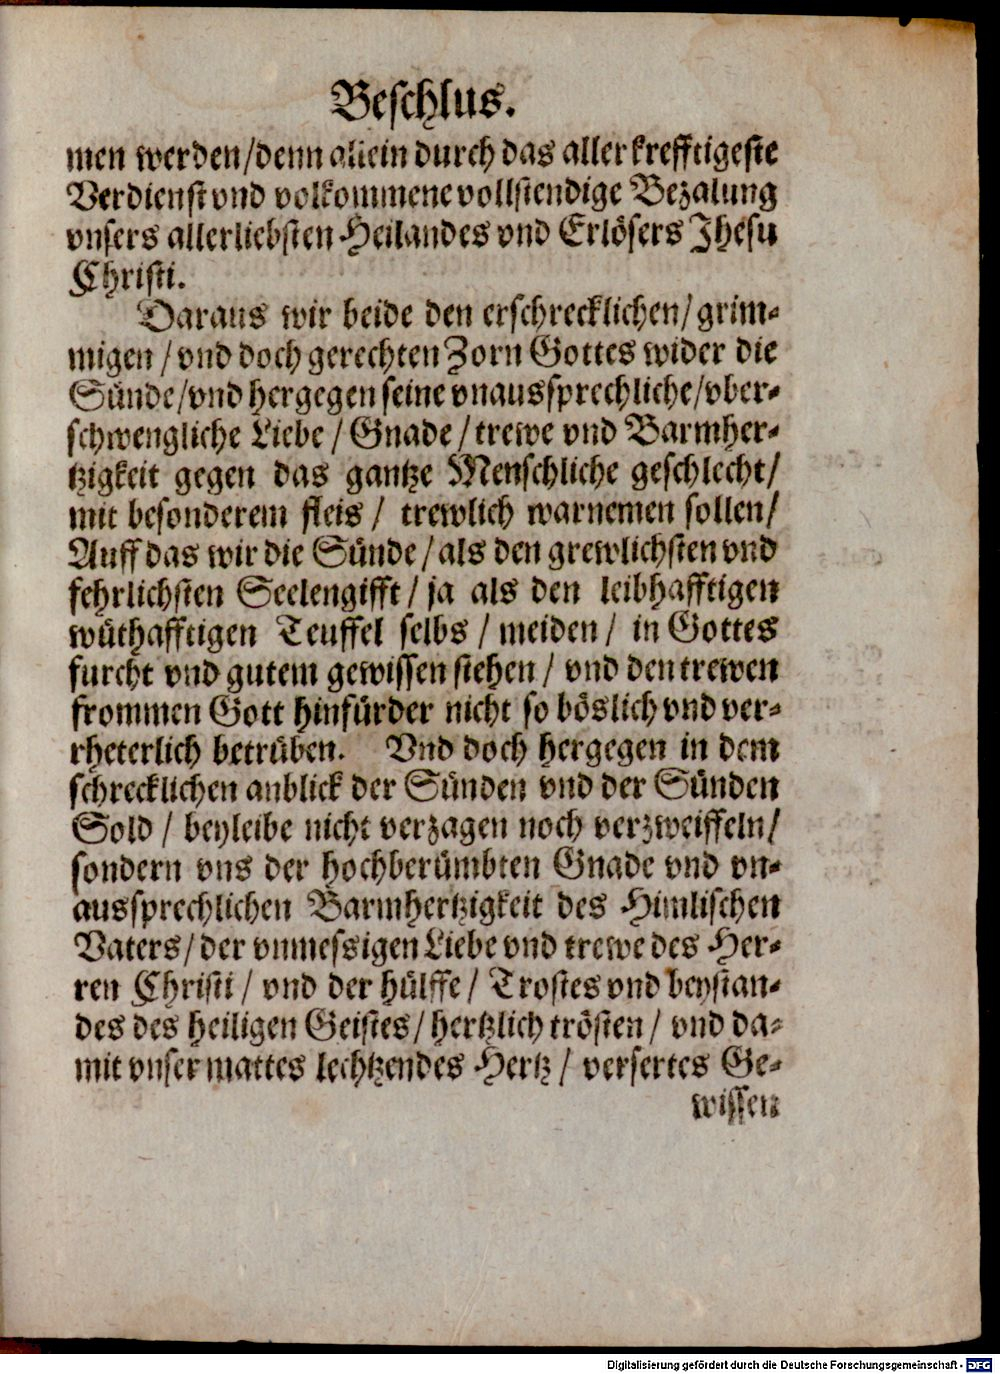 Beschlus.
men werden/denn allein durch das aller krefftigeste
Verdienst vnd volkommene vollstendige Bezalung
vnsers allerliebsten Heilandes vnd Erlösers Jhesu
Christi.
Daraus wir beide den erschrecklichen/ grim-
migen / vnd doch gerechten Zorn Gottes wider die
Sünde/vnd hergegen seine vnaussprechliche/vber-
schwengliche Liebe / Gnade / trewe vnd Barmher-
tzigkeit gegen das gantze Menschliche geschlecht/
mit besonderem fleis / trewlich warnemen sollen/
Auff das wir die Sünde / als den grewlichsten vnd
fehrlichsten Seelengifft / ja als den leibhafftigen
wüthafftigen Teuffel selbs / meiden / in Gottes
furcht vnd gutem gewissen stehen / vnd den trewen
frommen Gott hinfürder nicht so böslich vnd ver-
rheterlich betrüben. Vnd doch hergegen in dem
schrecklichen anblick der Sünden vnd der Sünden
Sold / beyleibe nicht verzagen noch verzweiffeln/
sondern vns der hochberümbten Gnade vnd vn-
aussprechlichen Barmhertzigkeit des Himlischen
Vaters/ der vnmessigen Liebe vnd trewe des Her-
ren Christi / vnd der hülffe / Trostes vnd beystan-
des des heiligen Geistes / hertzlich trösten / vnd da-
mit vnser mattes lechtzendes Hertz / versertes Ge-
wissen
Digitalisierung gefördert durch die Deutsche Forschungsgemeinschaft - DFG